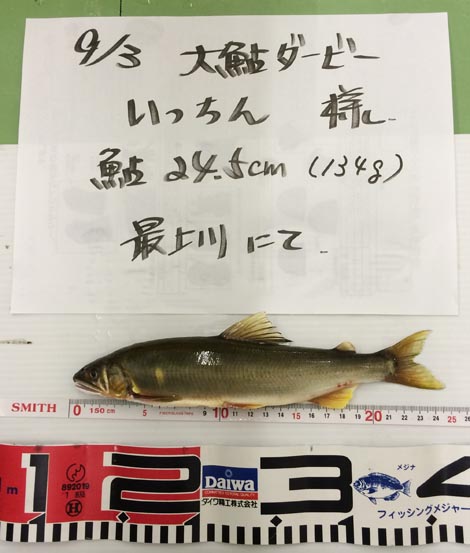 9/3 大鮎ダービー
いっちん 様
鮎 24.5cm (134g)
最上川にて
SMITH 0 150cm 5 10 15 20 25
1m 1 2 3 4
892019
Daiwa
ダイワ精工株式会社
メジナ
フィッシングメジャー